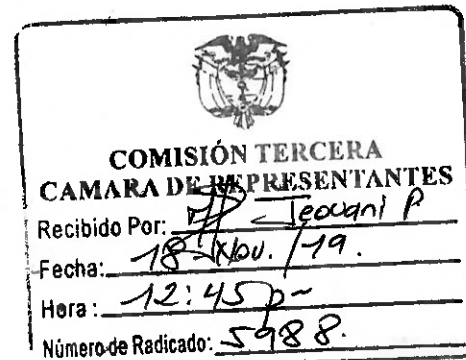 COMISIÓN TERCERA
CAMARA DE REPRESENTANTES
Recibido Por: Jeovani P
Fecha: 18-Nov. /19.
Hora: 12:45 p~
Número de Radicado: 5988.